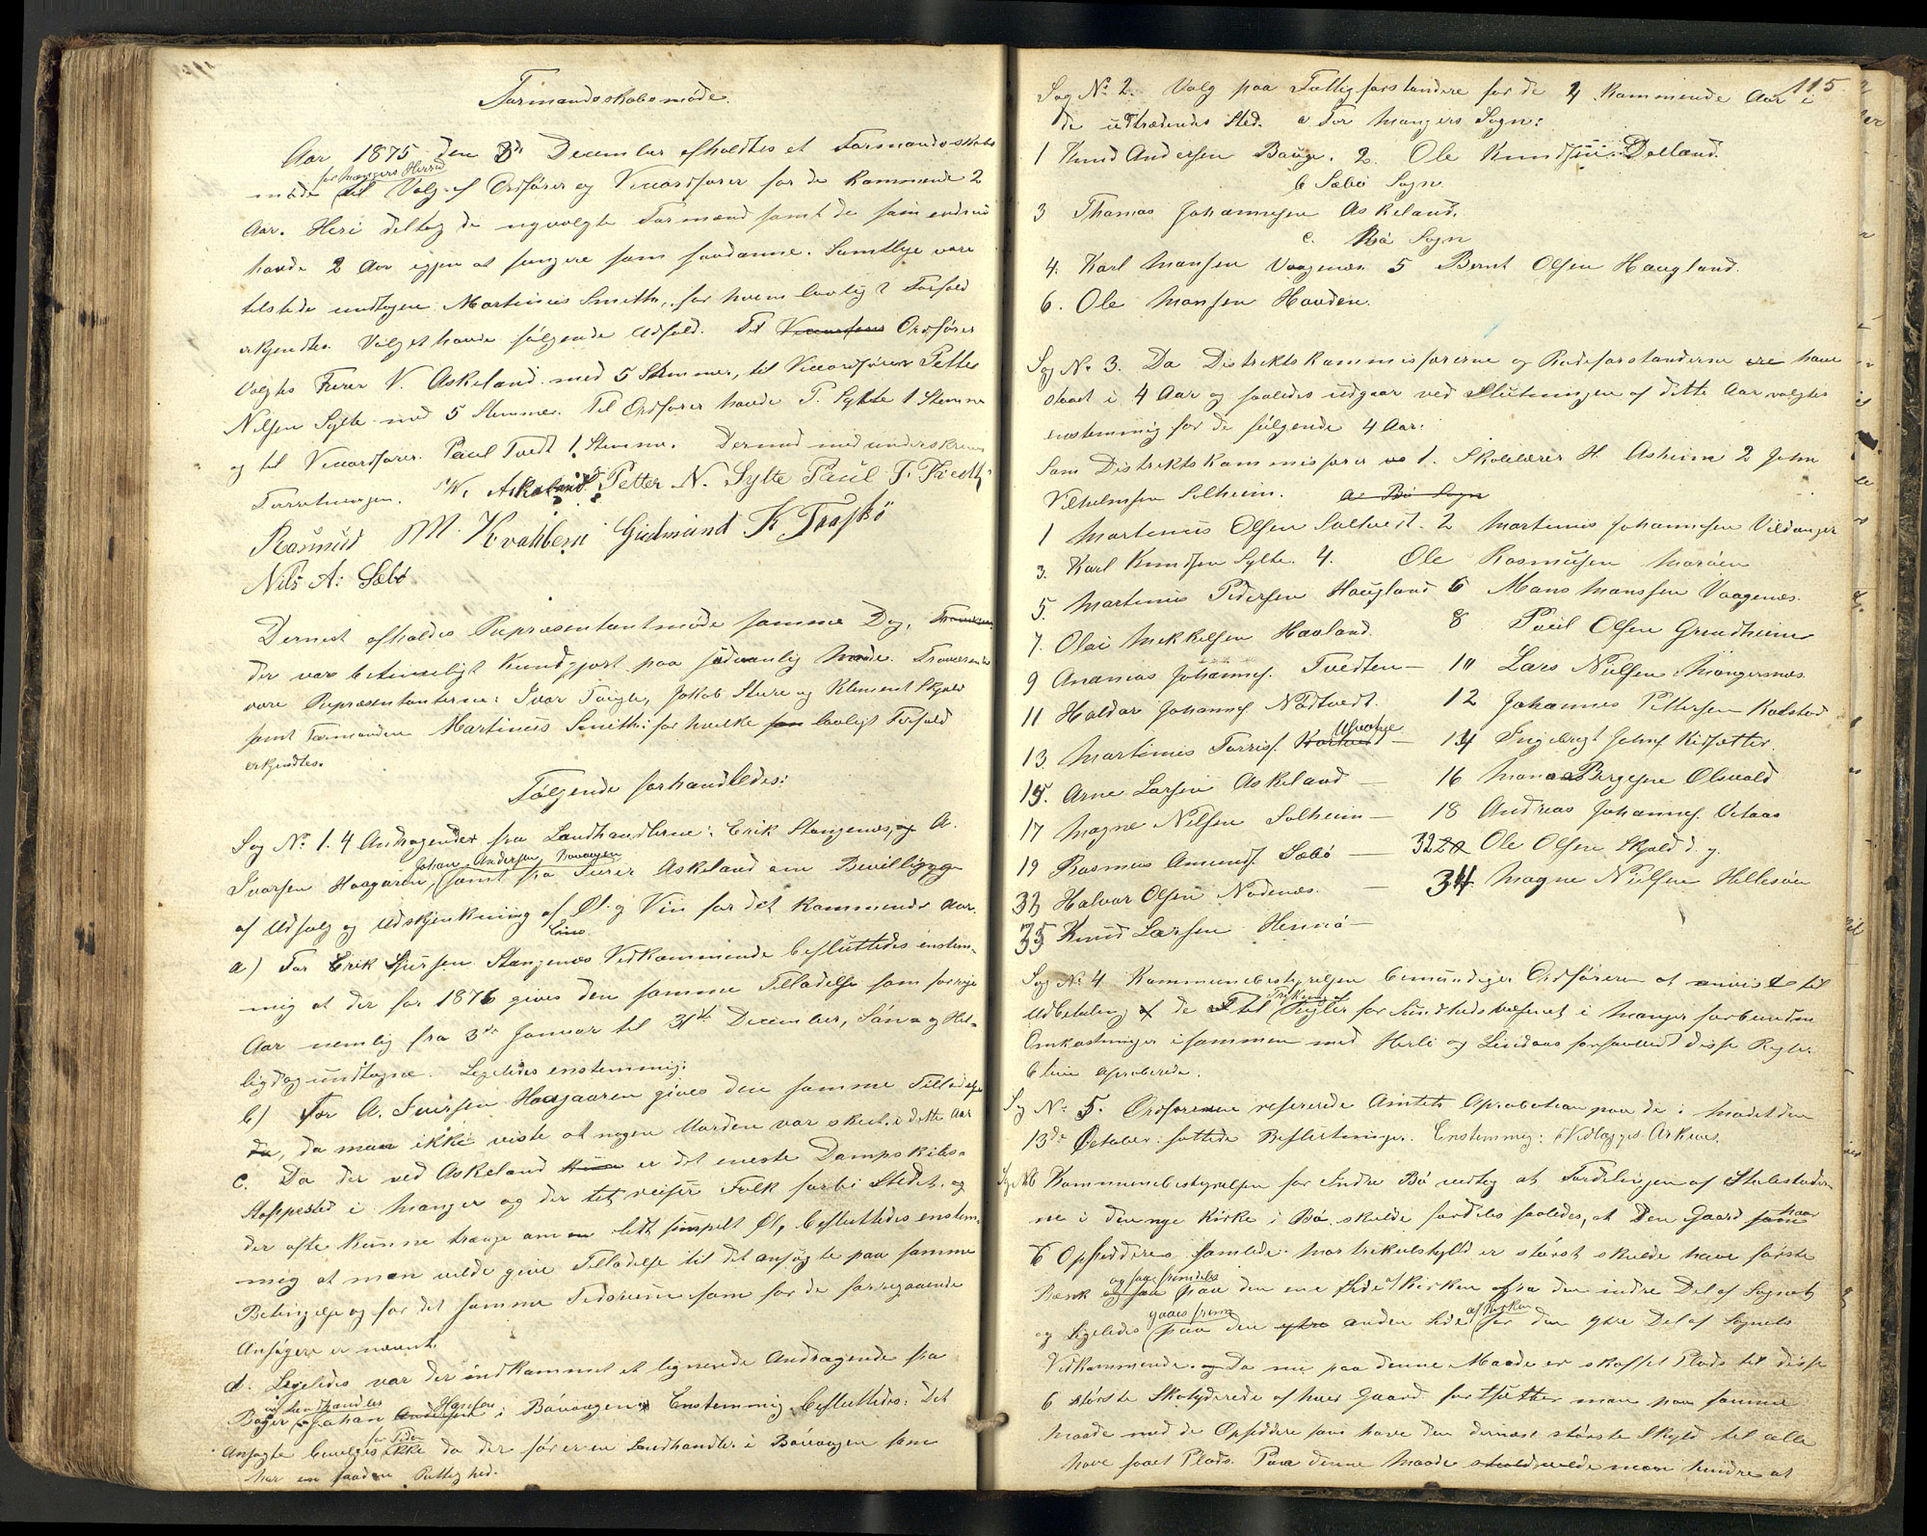 Formandskabsmøde.
Aar 1875 den 3de December afholdtes et Formandsskabs
for Mangers Herred
møde til Valg af Ordfører og Viceordfører for de kommende 2
Aar. Heri deltog de nyvalgte Formænd samt de som endnu
havde 2 Aar igjen at fungere som saadanne. Samtlige vare
tilstede undtagen Martinus Smith, for hvem lovligt Forfald
erkjendtes. Valget havde følgende Udfald. Til Viceordfører Ordfører
valgtes Furer V. Askeland med 5 Stemmer, til Viceordfører Petter
Nilsen Sylte med 5 Stemmer. Til Ordfører havde P. Sylte 1 Stemme
og til Viceordfører Paul Tvedt 1 Stemme. Dermed med underskreven
Forretningen. W. Askeland Petter N. Sylte Paul J. Tvedt
Rasmus M. Kvahlheim Gudmund K Toskø
Nils A: Sæbø
Dernæst afholdes Repræsentantmøde samme Dag,
der var betimeligt kundgjort paa sædvanlig Maade. Fraværende
vare Repræsentanterne: Ivar Toigte, Jakob Sture og Klement Skjold
samt Formanden Martinus Smith: for hvilke som lovligt Forfald
erkjendtes.
Følgende forhandledes:
Sag No 1. 4 Andragender fra Landhandlerne: Erik Stangenæs, og A.
Johan Andersen Bøvaagen
Ivarsen Haagaren, samt fra Furer Askeland om Bevilligelse
af Udsalg og Udskjenkning af Øl og Vin for det kommende Aar.
a) For Erik Sjursen Stangenæs Vedkommende besluttedes enstem-
mig at der for 1876 gives den samme Tilladelse som forrige
Aar nemlig fra 3de Januar til 31te December, Søn- og Hel-
ligdag undtagne. Ligeledes enstemmig:
b) For A. Iversen Haagaaren gives den samme Tilladelse
da, da man ikke viste at nogen Uorden var skeet i dette Aar
c. Da der ved Askeland er det eneste Dampskibs-
stoppested i Manger og der tet reiser Folk forbi Stedet, og
der ofte kunne trænge om en lidt simpelt Øl, besluttedes enstem-
mig at man vilde give Tilladelse til det ansøgte paa samme
Betingelse og for det samme Tidsrum som for de foregaaende
Ansøgere er nævnt.
d. Ligeledes var der indkommet et lignende Andragende fra
og Landhandler Hansen
Bager Johan Andersen i Bøvaagen Enstemmig besluttedes: Det
for Tiden
Ansøgte bevilges ikke da der før er en Landhandler i Bøvaagen som
har en saadan Rettighed.
115
Sag No 2. Valg paa Fattigforstandere for de 4 kommende Aar i
de udtrædendes Sted. a For Mangers Sogn:
1 Knud Andersen Bauge. 2. Ole Knudsen Dalland.
b Sæbø Sogn
3 Thomas Johannesen Askeland.
c. Bø Sogn
4. Karl Monsen Vaagenæs 5 Bernt Olsen Haugland.
6. Ole Monsen Hauden.
Sag No 3. Da Distriktskommissærerne og Rodeforstanderne ere have
staaet i 4 Aar og saaledes udgaar ved Slutningen af dette Aar valgtes
enstemmig for de følgende 4 Aar:
Som Distriktskommissærer 1. Skolelærer H Asheim 2 John
Vilhelmsen Solheim. a. Bø Sogn
1 Martinus Olsen Soltvedt. 2 Martinus Johannesen Vildanger
3. Karl Knudsen Sylte. 4. Ole Rasmusen Marøen
5. Martinus Pedersen Haugland 6 Mons Monssen Vaagenæs.
7. Olai Mikkelsen Havland. 8 Paul Olsen Grindheim
9 Ananias Johannes. Tvedten — 10 Lars Nielsen Mangersnæs
11 Haldor Johannes. Nødtvedt. 12 Johannes Pettersen Kolstad
Alvatge
13. Martinus Torris. — 14 Ingebrigt Johns Risætter
15. Arne Larsen Askeland — 16 Mons Bergesen Olsvold
17 Magne Nilsen Solheim — 18 Andreas Johannes. Vetaas
19 Rasmus Amunds. Sæbø — 32 Ole Olsen Skjold d. y.
33 Halvor Olsen Nodenæs. — 34 Magne Nielsen Hellesøen
35 Knud Larsen Hennø —
Sag No 4 Kommunebestyrelsen bemyndiger Ordføreren at anviste til
Trykning af
Udbetaling af de til Regler for Sundhedsvæsenet i Manger forbundne
Omkostninger isammen med Herlø og Lindaas forsaavidt disse Regler
blive aproberede.
Sag No 5. Ordføreren refererede Amtets Aprobation paa de i Mødet den
13de October fattede Beslutninger. Enstemmig: Vedlægges Arkivet.
Sag No 6 Kommunebestyrelsen for Indre Bø vedtog at Fordelingen af Stolestader-
ne i den nye Kirke i Bø skulde fordeles saaledes, at den Gaard som
har
6 Opsidderes samlede Matrikulskyld er størst skulde have første
og saa fremdeles
Bænk og saa paa den ene Side af Kirken fra den indre Del af Sognet
gaaes frem af Kirken
og Ligeledes paa den ytre anden Side for den ytre Del af Sognets
Vedkommende. og Da nu paa denne Maade er skaffet Plads til disse
6 største Skatydende af hver Gaard fortsætter man paa samme
Maade med de Opsiddere som have den dernæst største Skyld til alle
have faaet Plads. Paa denne Maade skuld vilde man hindre at